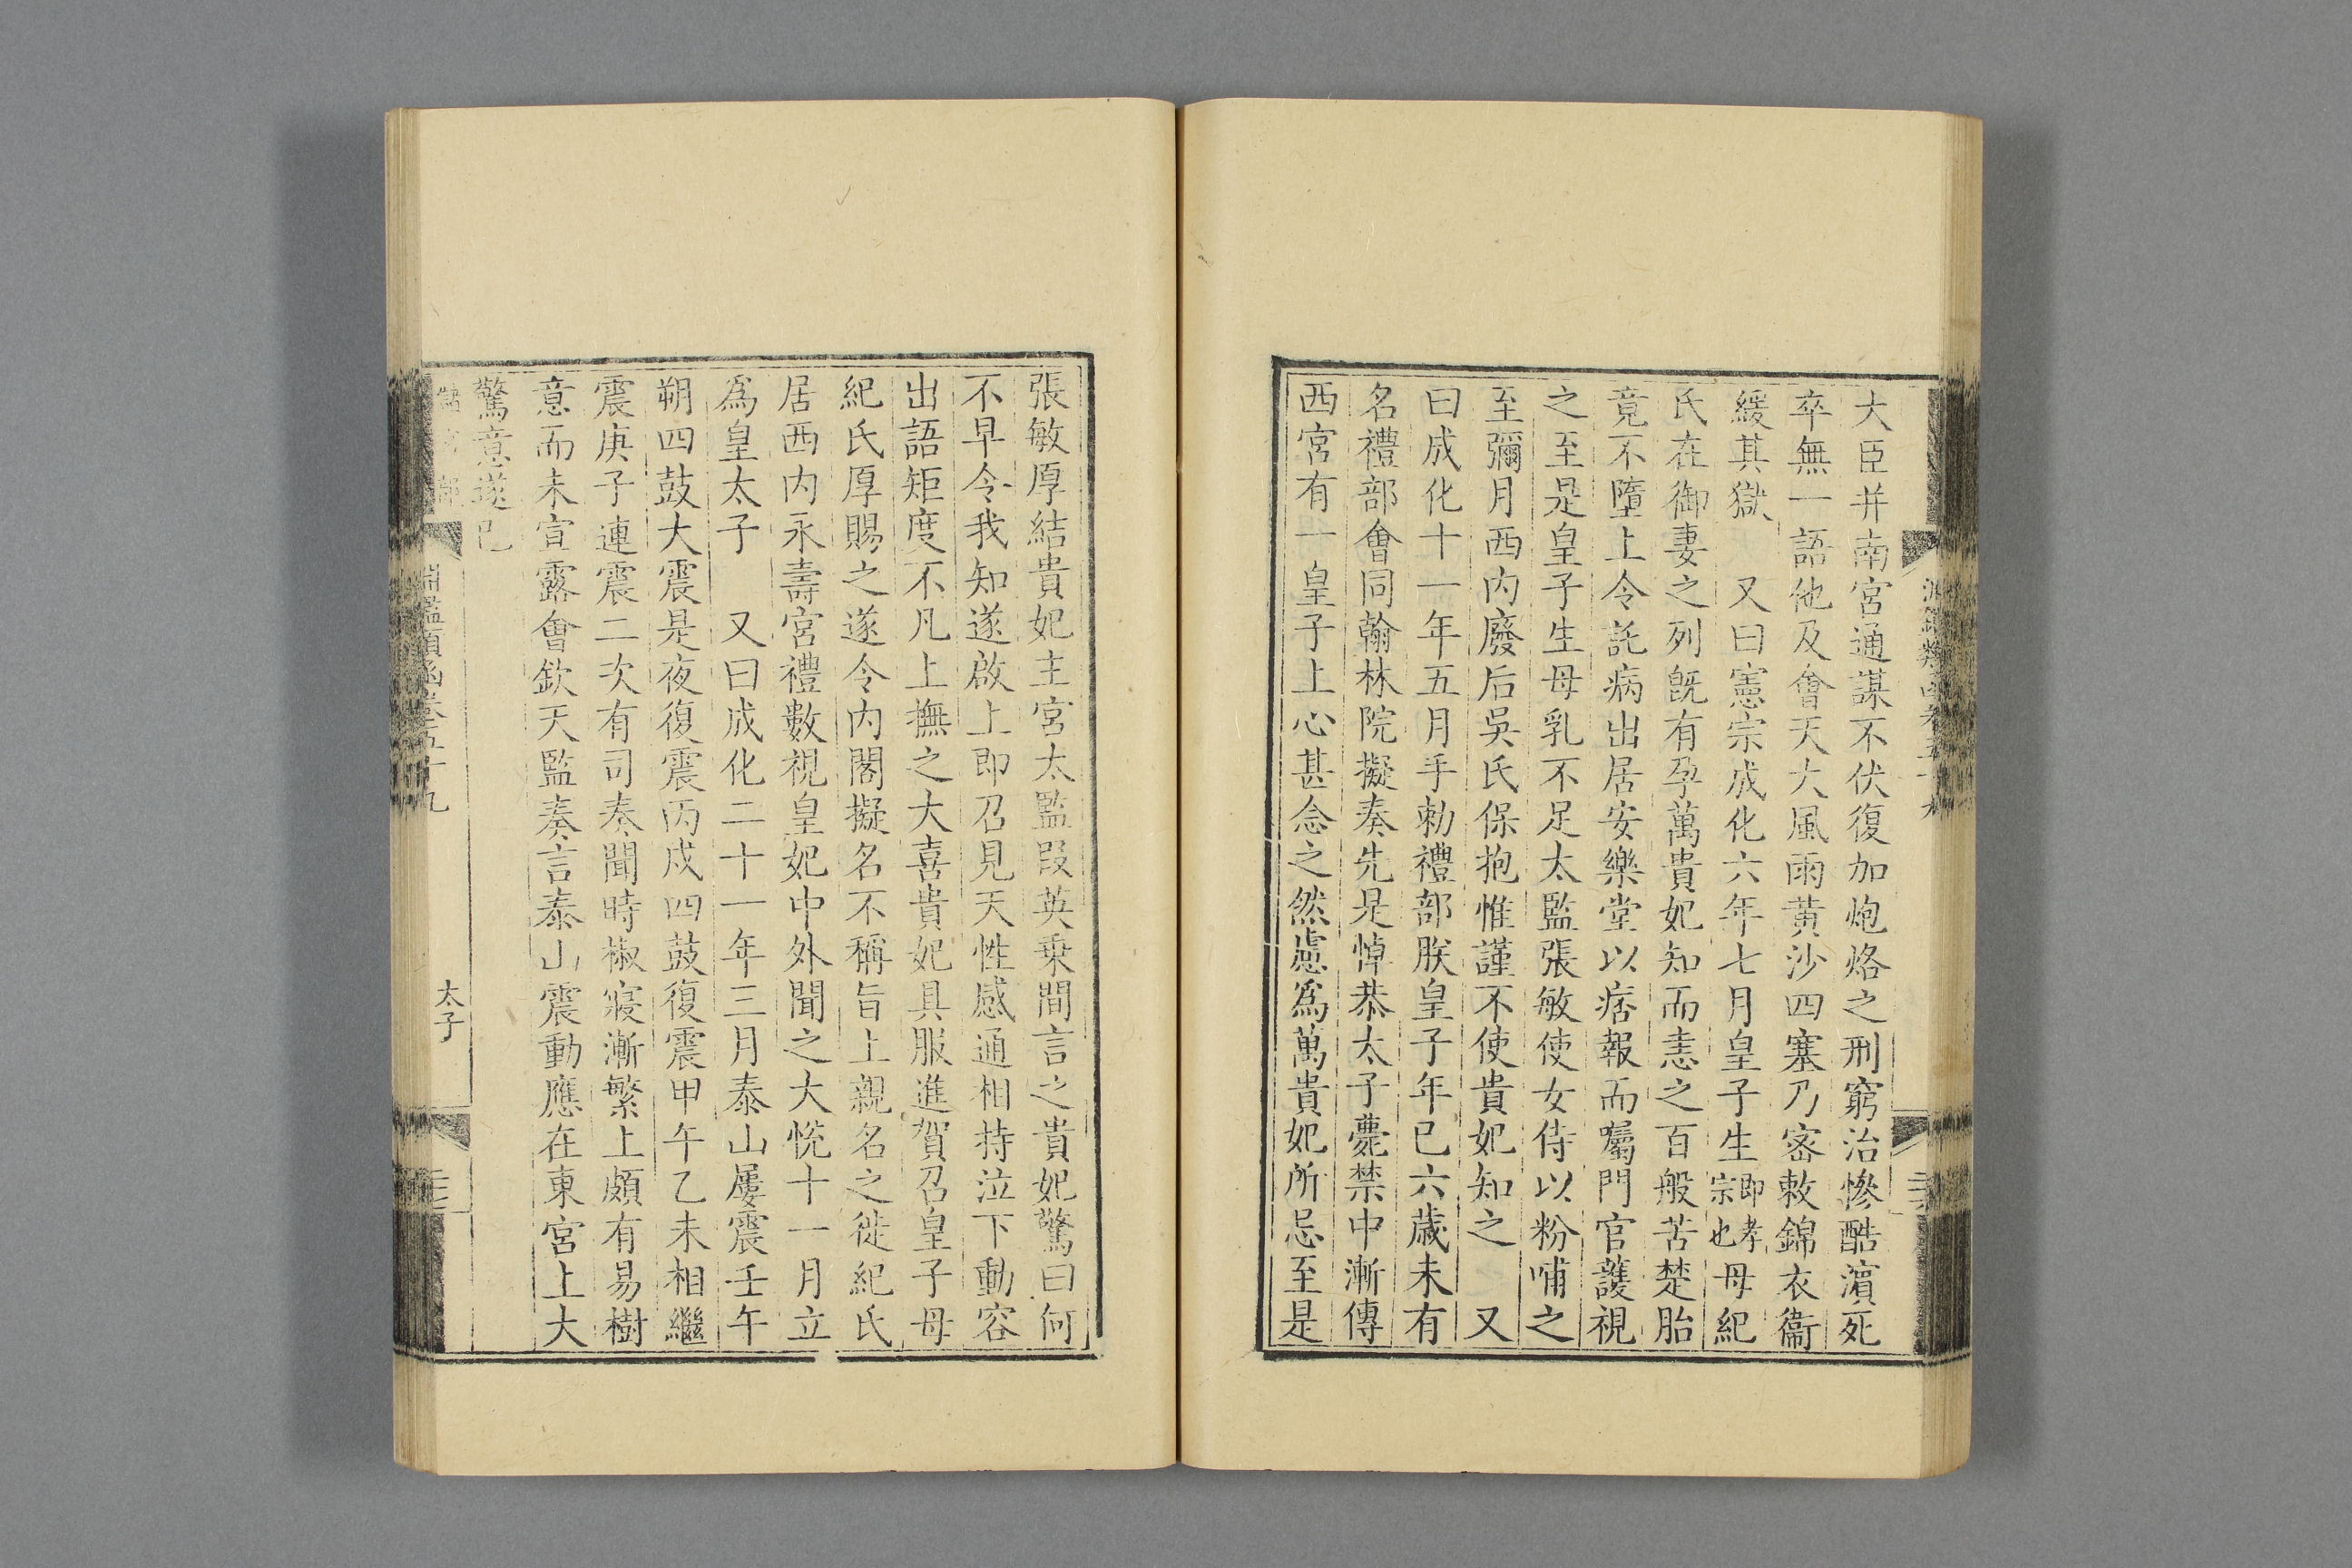 大臣并南宮通謀不伏復加炮烙之刑窮治慘酷濵死
卒無一語他及會天大風雨黄沙四塞乃宻敕錦衣衞
緩其獄　又曰憲宗成化六年七月皇子生即孝宗也母紀
氏在御妻之列既有孕萬貴妃知而恚之百般苦楚胎
竟不墮上令託病出居安樂堂以痞報而屬門官護視
之至是皇子生母乳不足太監張敏使女侍以粉哺之
至彌月西内廢后吳氏保抱惟謹不使貴妃知之　又
曰成化十一年五月手勅禮部朕皇子年已六歲未有
名禮部會同翰林院擬奏先是悼恭太子薨禁中漸傳
西宮有一皇子上心甚念之然慮爲萬貴妃所忌至是
張敏厚結貴妃主宮太監叚英乗間言之貴妃驚曰何
不早令我知遂啟上即召見天性感通相持泣下動容
出語矩度不凡上撫之大喜貴妃具服進賀召皇子母
紀氏厚賜之遂令内閣擬名不稱旨上親名之徙紀氏
居西内永壽宮禮數視皇妃中外聞之大恱十一月立
爲皇太子　又曰成化二十一年三月泰山屢震壬午
朔四鼓大震是夜復震丙戍四鼓復震甲午乙未相繼
震庚子連震二次有司奏聞時椒寢漸繁上頗有易樹
意而未宣露會欽天監奏言泰山震動應在東宮上大
驚意遂已
淵鑑類函卷五十九
太子